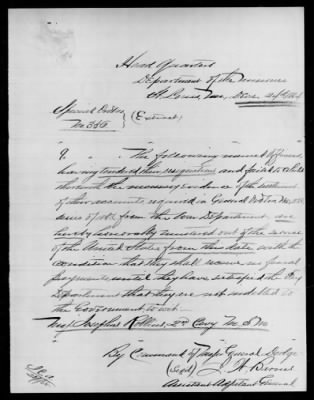 Head Quarters
Department of the Missouri
St Louis, Mo, Dec.
Special Orders
No 335 (Extract)
9. The following named officers
having tendered their resignations and failed to
through the necessary evidence of the settlement
of their accounts required in General Orders No
series of 1862 from the War Department, are
hereby honorably mustered out of the service
of the United States from this date with the
condition that they shall receive no final
payments until they have satisfied the Pay
Department that they are not indebted to
the Government to wit—
Maj. Josephus Rollins, 2d Cavy M. S. M.
By Command of Major General Dodge
(Signed) J. A.
Assistant Adjutant General